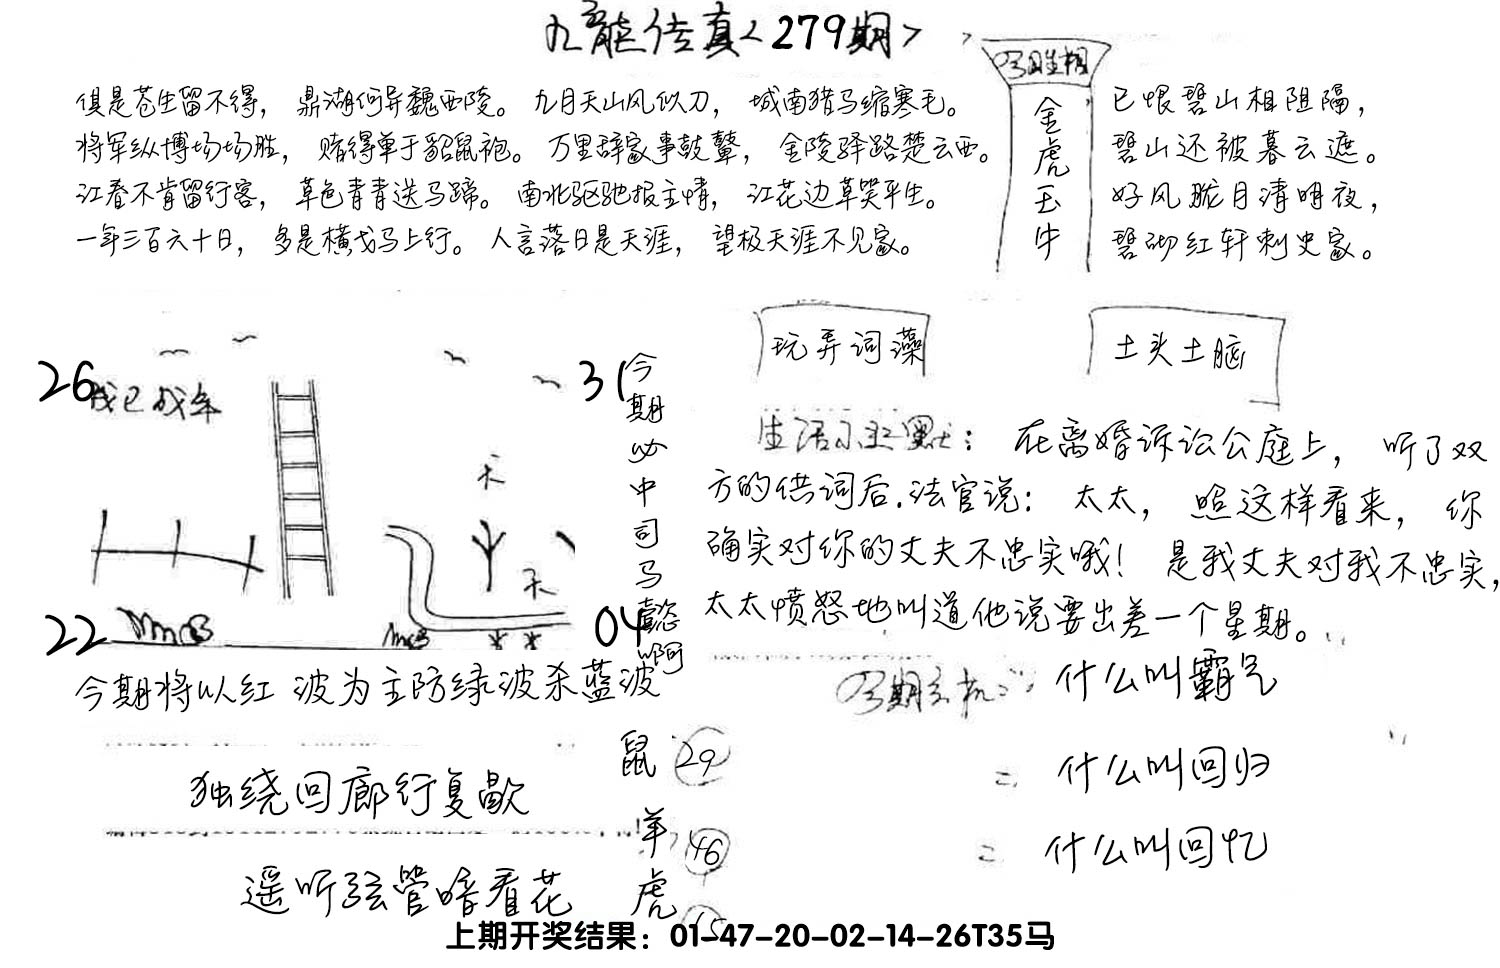 九龍传真<279期>
俱是苍生留不得，鼎湖何异魏西陵。九月天山风似刀，城南猎马缩寒毛。
将军纵博场场胜，赌得单于貂鼠袍。万里辞家事鼓鼙，金陵驿路楚云西。
江春不肯留行客，草色青青送马蹄。南北驱驰报主情，江花边草笑平生。
一年三百六十日，多是横戈马上行。人言落日是天涯，望极天涯不见家。
金虎玉牛
已恨碧山相阻隔，
碧山还被暮云遮。
好风胧月清明夜，
碧砌红轩刺史家。
26
31
22
04
天
天
今期必中司马懿啊
玩弄词藻
土头土脑
生活小幽默：在离婚诉讼公庭上，听了双
方的供词后.法官说：太太，照这样看来，你
确实对你的丈夫不忠实哦！是我丈夫对我不忠实，
太太愤怒地叫道他说要出差一个星期。
今期将以红 波为主防绿波杀蓝波
今期玄机：什么叫霸气
什么叫回归
什么叫回忆
独绕回廊行复歇
遥听弦管暗看花
鼠 29
羊 46
虎 15
上期开奖结果：01-47-20-02-14-26T35马